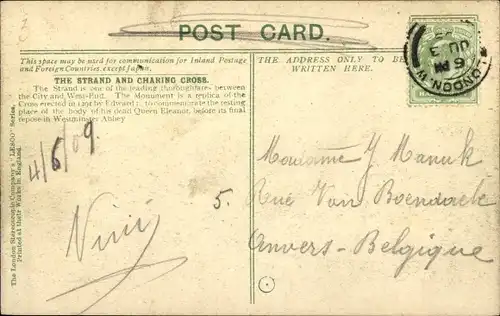 POST CARD.
This space may be used for communication for Inland Postage
and Foreign Countries, except Japan.
THE STRAND AND CHARING CROSS.
The Strand is one of the leading thoroughfares between
the City and West-End. The Monument is a replica of the
Cross erected in 1291 by Edward I. to commemorate the resting
place of the body of his dead Queen Eleanor, before its final
repose in Westminster Abbey
4/6/09.
The London Stereoscopic Company's "LESCO" Series.
Printed at their Works in England.
THE ADDRESS ONLY TO BE
WRITTEN HERE.
LONDON. W
6 PM
JU 3
Madame Y Manuk
5. Rue Van Boendack
Anvers-Belgique